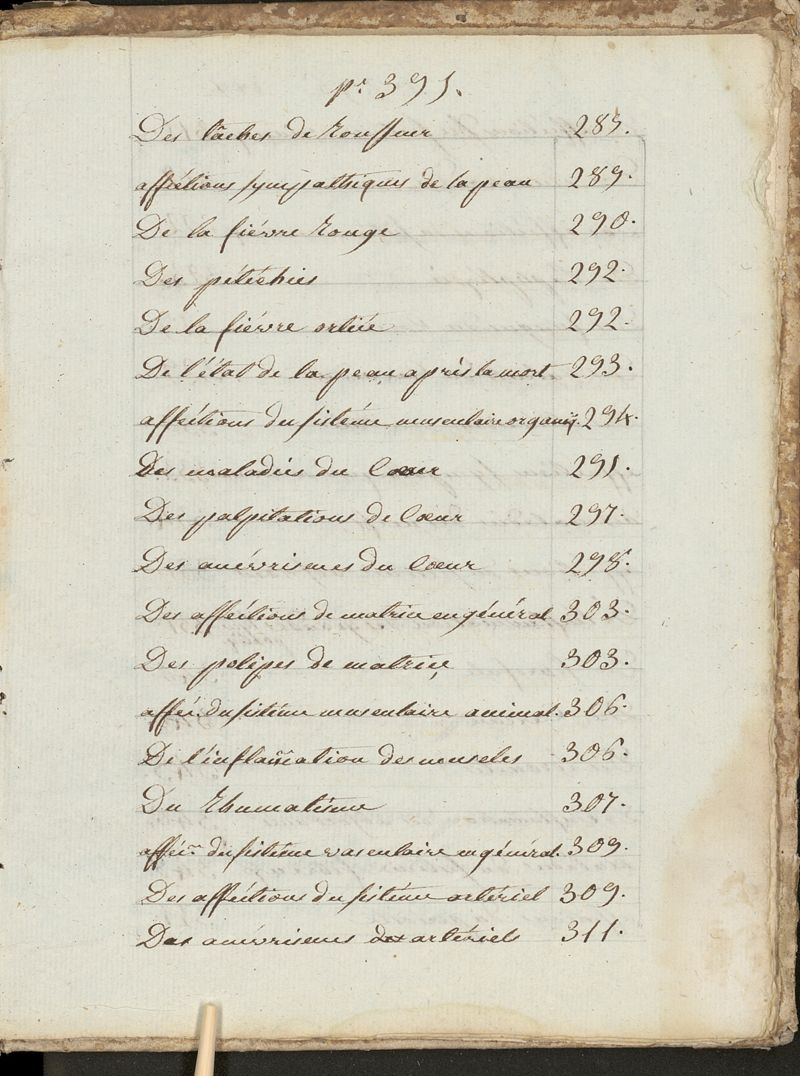 pr. 395.
Des tâches de Rousseur 285.
affections sympathiques de la peau 289.
De la fiévre Rouge 290.
Des pétéchies 292.
De la fiévre ortiée 292.
De l'état de la peau après la mort 293.
affections du sistéme musculaire organiq. 294.
Des maladies du Cœur 295.
Des palpitations de Cœur 297.
Des anévrismes du Cœur 298.
Des affections de matrice en général 303.
Des polipes de matrice 303.
affec. du sistéme musculaire animal. 306.
De l'inflam̃ation des muscles 306.
Du Rhumatisme 307.
affecns. du sistéme vasculaire en général. 309.
Des affections du sistéme artériel 309.
Des anévrismes artériels 311.